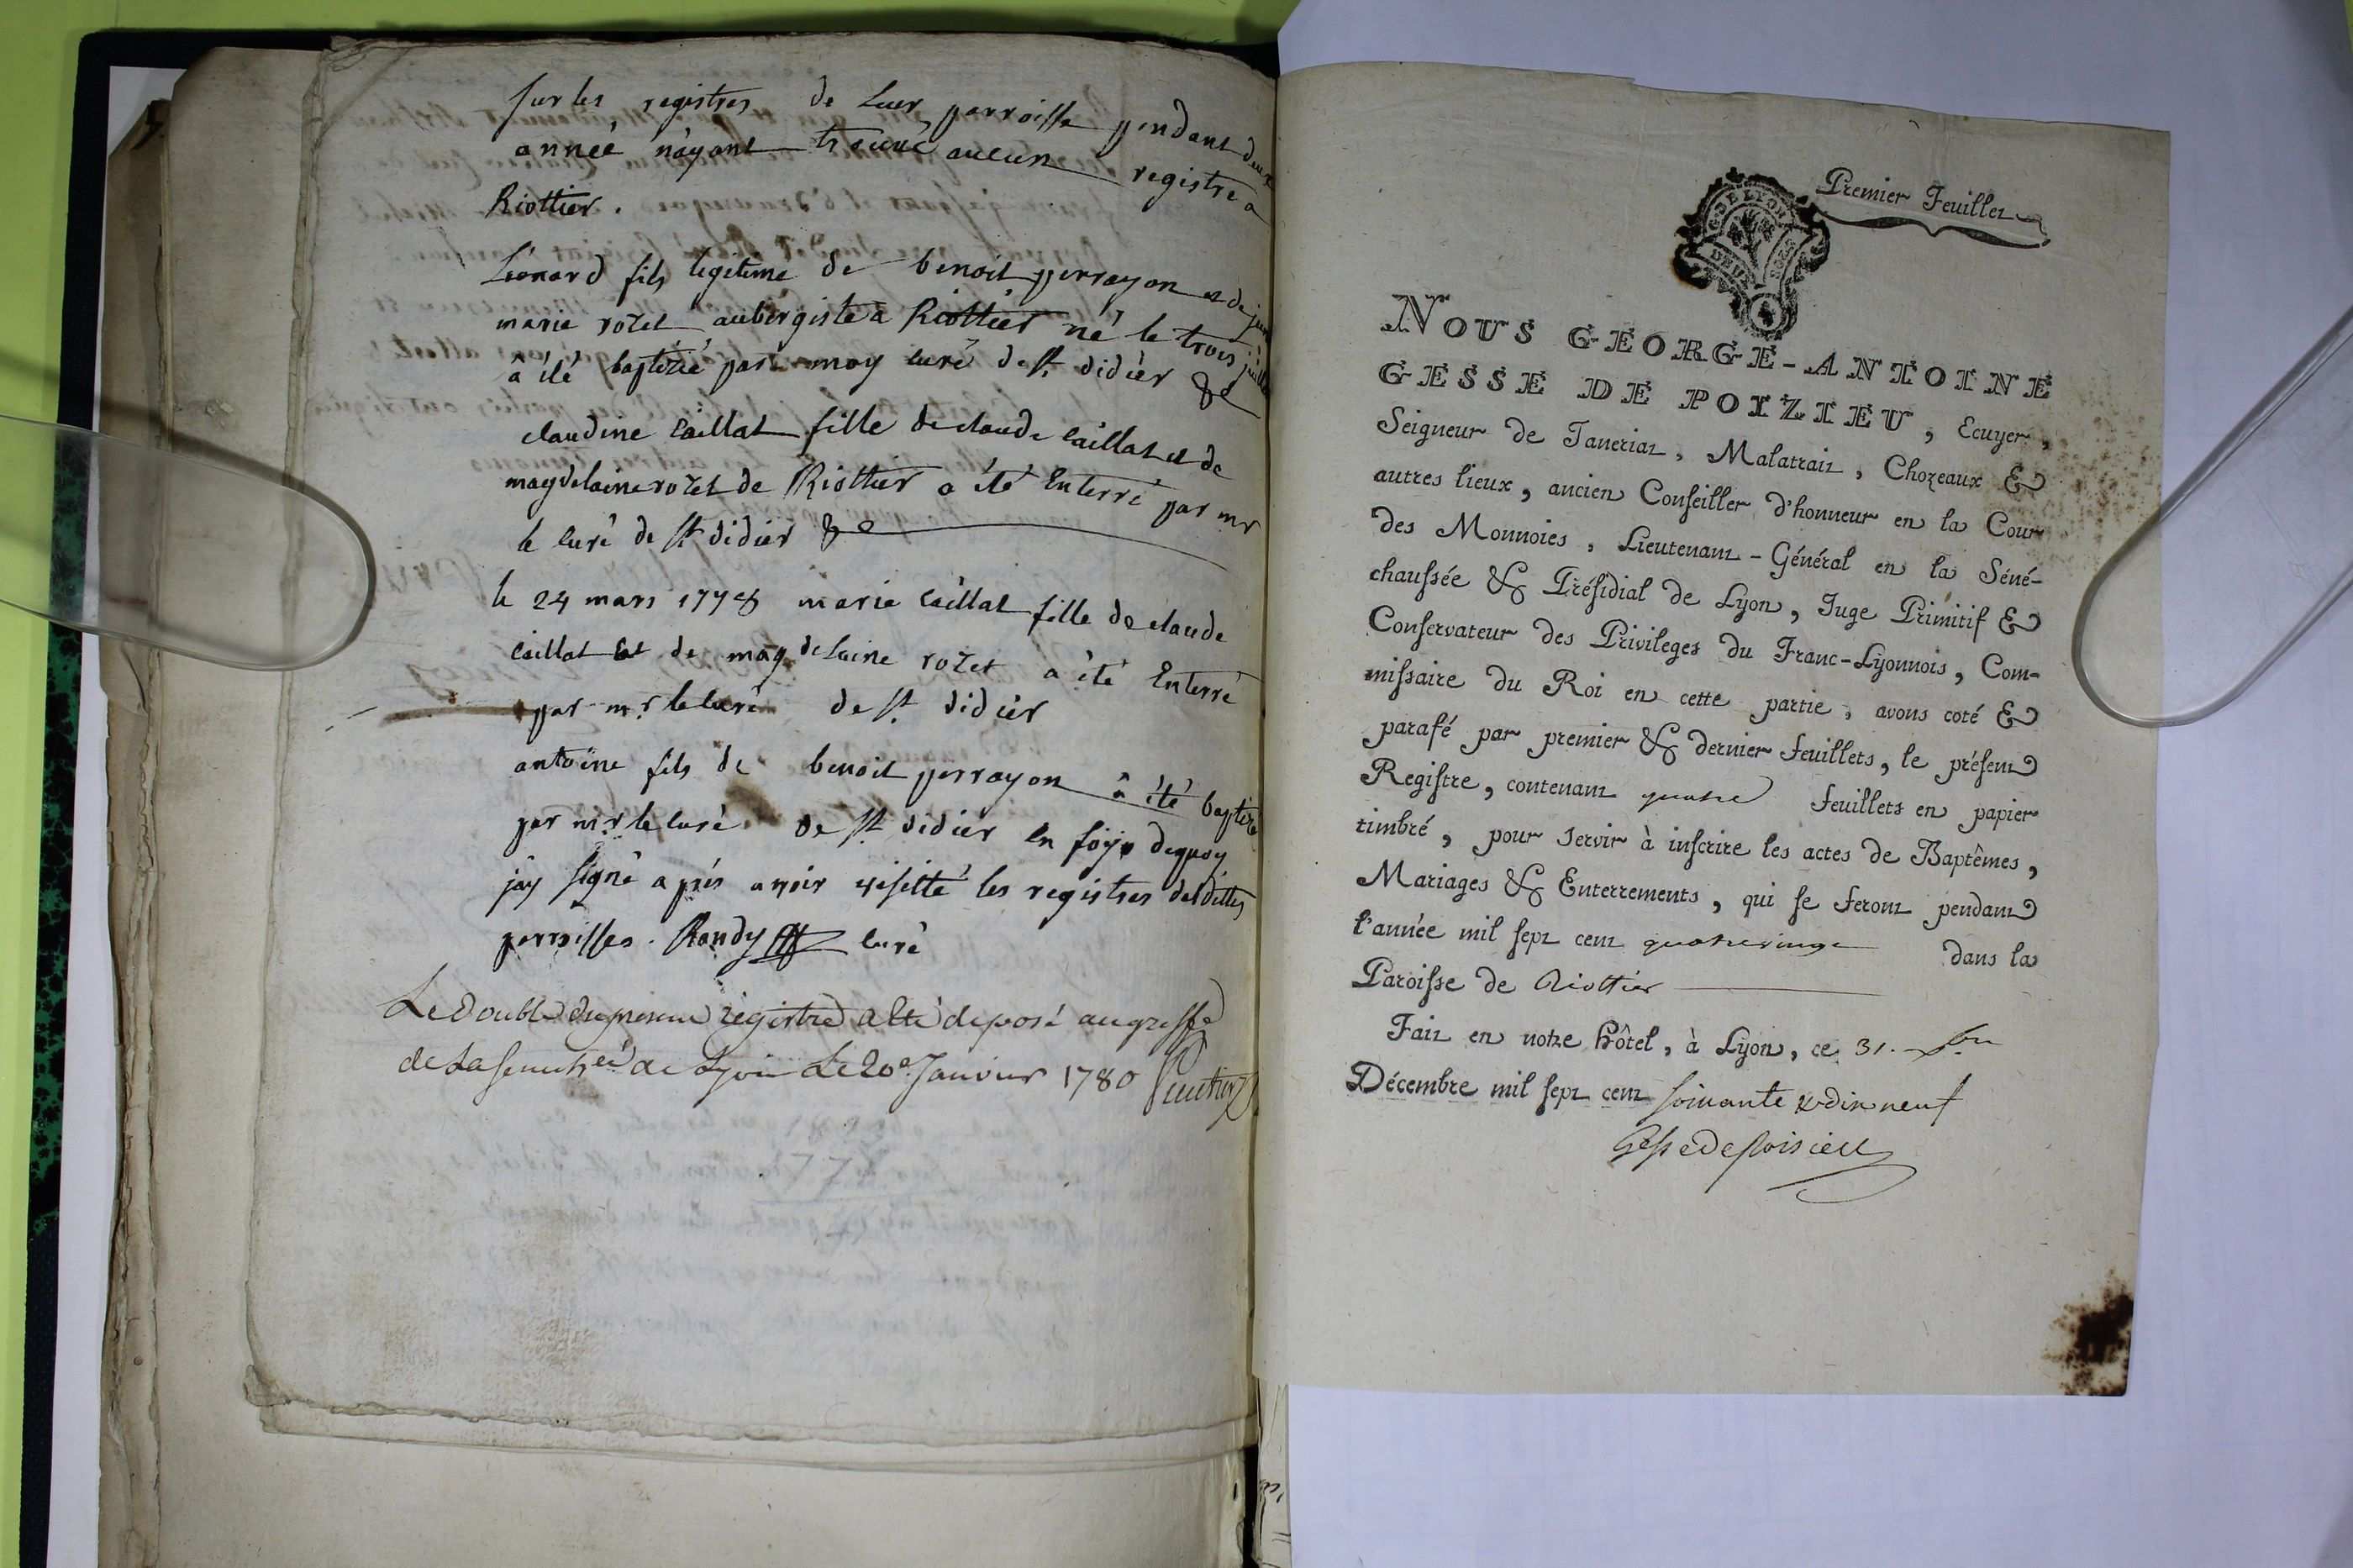 sur les registres de leur parroisse pendant deux
année n'ayant trouvé aucun registre a
Riottier.
Léonard fils legitime de benoit perrayon et de
marie rozet aubergiste a Riottier né le trois juillet
a été baptizé par moy curé de st. didier &c
claudine caillat fille de claude caillat et de
magdelaine rozet de Riottier a été Enterré par mr
le curé de st didier &c
le 24 mars 1778 marie caillat fille de claude
caillat Et de magdelaine rozet a été Enterré
par mr. le curé de st. didier
antoine fils de benoit perrayon a été baptizé
par mr. le curé de st didier en foy de quoy
j'ay signé aprés avoir visitté les registres desdittes
parroisses. Rondy curé
Le double du present registre a été deposé au greffe
de la senechée de Lyon Le 20e Janvier 1780
Premier Feuillet
G. DE LYON
DEUX SOLS
4
NOUS GEORGE-ANTOINE
GESSE DE POIZIEU, Ecuyer,
Seigneur de Taneriat, Malatrait, Chozeaux &
autres lieux, ancien Conseiller d'honneur en la Cour
des Monnoies, Lieutenant-Général en la Séné-
chaussée & Présidial de Lyon, Juge Primitif &
Conservateur des Privileges du Franc-Lyonnois, Com-
missaire du Roi en cette partie, avons coté &
parafé par premier & dernier feuillets, le présent
Registre, contenant quatre feuillets en papier
timbré, pour servir à inscrire les actes de Baptêmes,
Mariages & Enterrements, qui se feront pendant
l'année mil sept cent quatrevingt dans la
Paroisse de Riottier
Fait en notre hôtel, à Lyon, ce 31.
Décembre mil sept cent soixante & dix neuf
Gesse de Poisieu